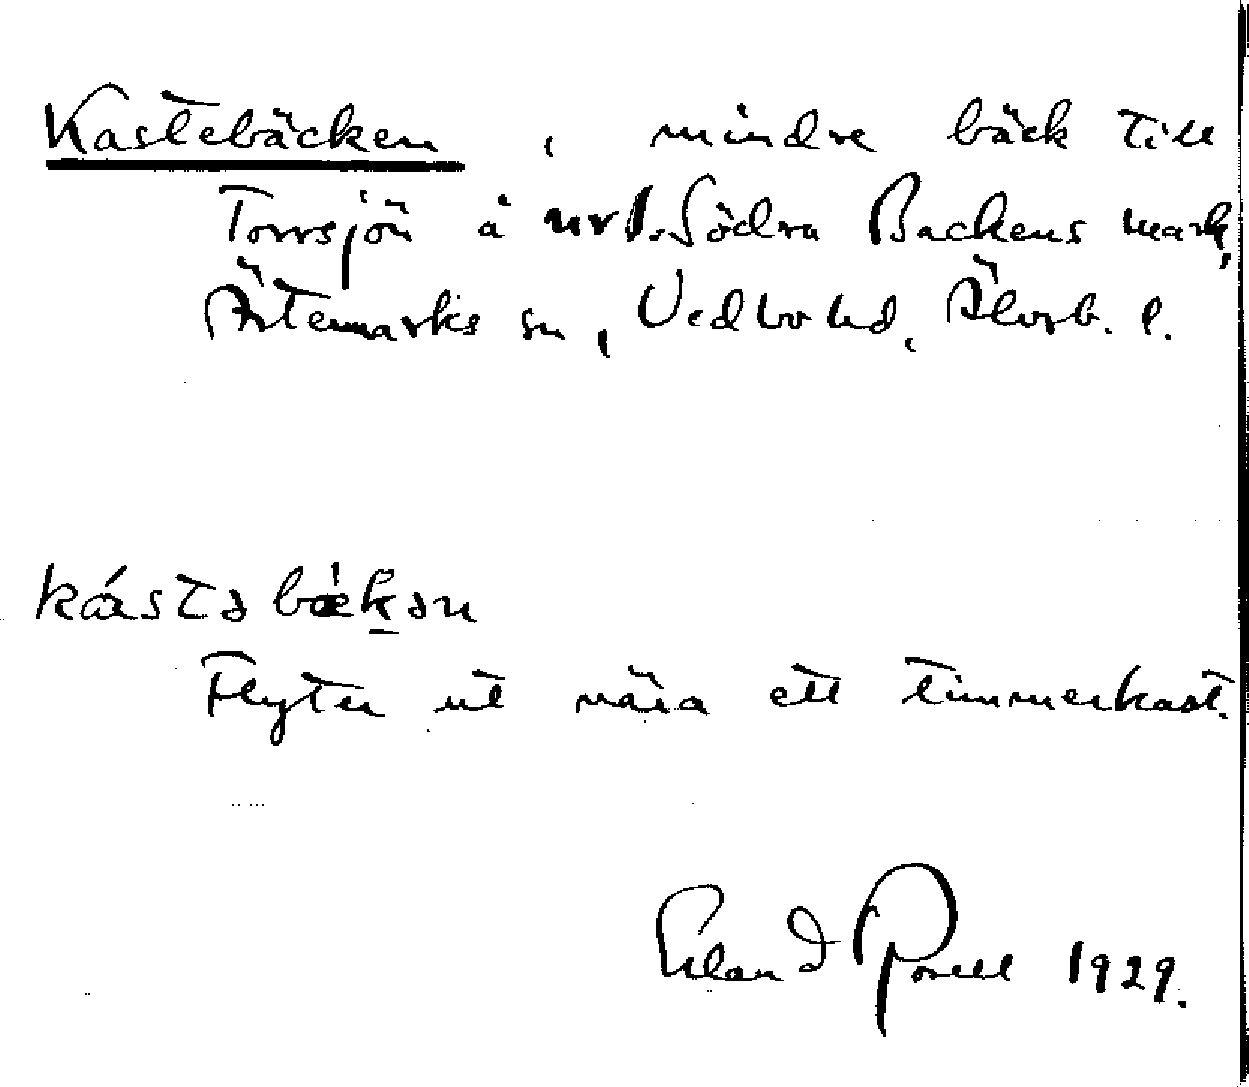 Kastebäcken, mindre bäck till
Torrsjön å nrd. Södra Backens mark,
Ärtemarks sn, Vedbo hd, Älvsb. l.
kástəbæ̀k̲ən
Flyter ut nära ett timmerkast.
Erland Rosell 1929.